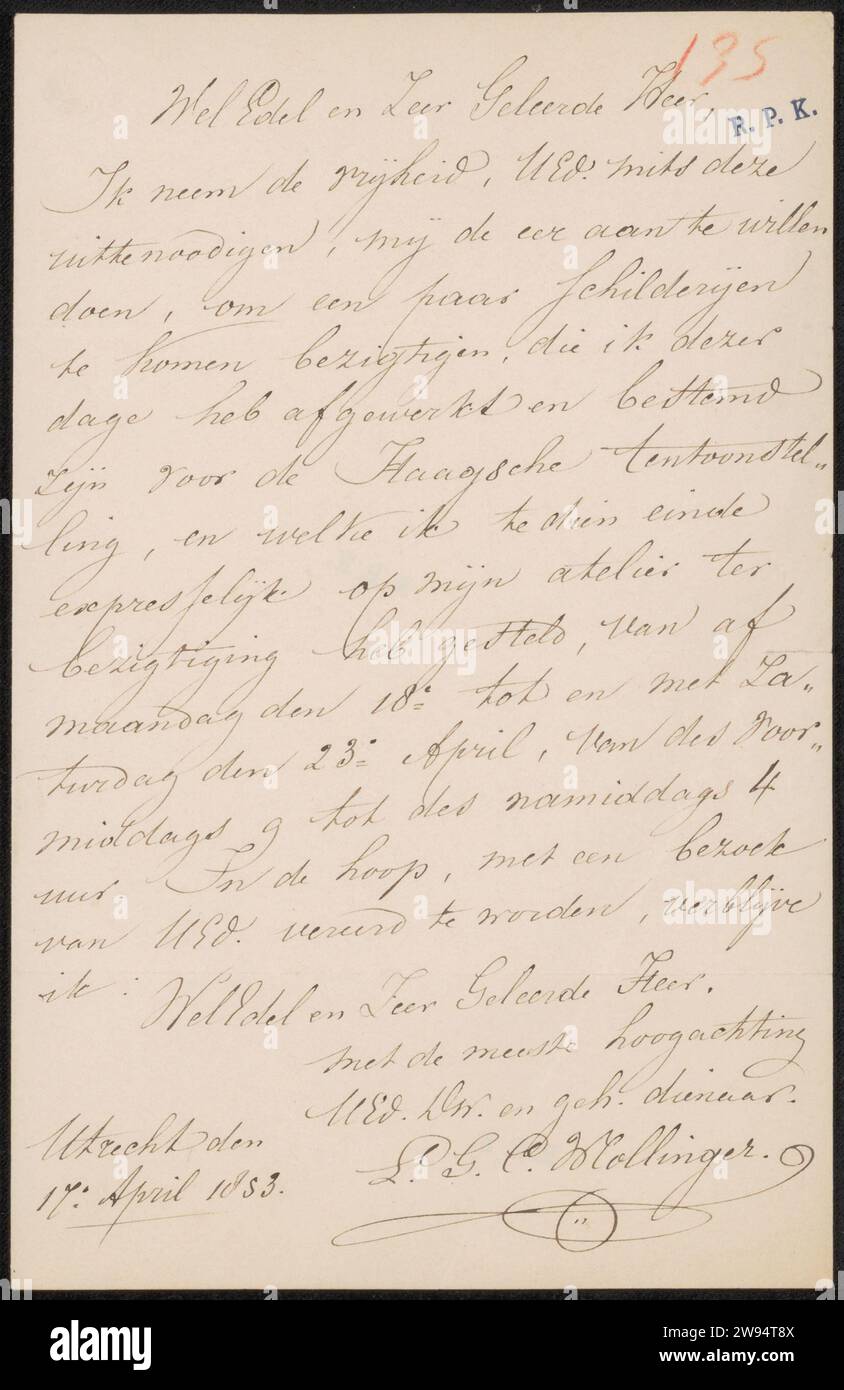 135
R. P. K.
Wel Edel en Zeer Geleerde Heer,
Ik neem de vrijheid, UEd. mits deze
uittenoodigen, mij de eer aan te willen
doen, om een paar schilderijen
te komen bezigtigen, die ik dezer
dage heb afgewerkt en bestemd
zijn voor de Haagsche tentoonstel„
ling, en welke ik te dien einde
expresselijk op mijn atelier ter
bezigtiging heb gesteld, van af
maandag den 18e tot en met Za„
turdag den 23e April, van des voor„
middags 9 tot des namiddags 4
uur In de hoop, met een bezoek
van UEd. vereerd te worden, verblijve
ik:
Wel Edel en Zeer Geleerde Heer.
met de meeste hoogachting
UEd. Dw. en geh. dienaar.
Utrecht den
17e April 1853.
G. C. Mollinger.
alamy
Image ID: 2W94T8X
www.alamy.com